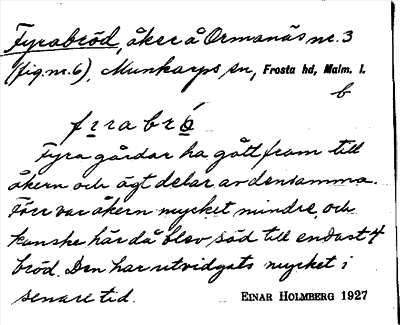 Fyrabröd, åker å Ormanäs nr. 3
(fig nr. 6), Munkarps sn, Frosta hd, Malm. l.
b
firabrö
Fyra gårdar ha gått fram till
åkern och ägt delar av densamma.
Förr var åkern mycket mindre, och
kanske här då blev säd till endast 4
bröd. Den har utvidgats mycket i
senare tid.
EINAR HOLMBERG 1927